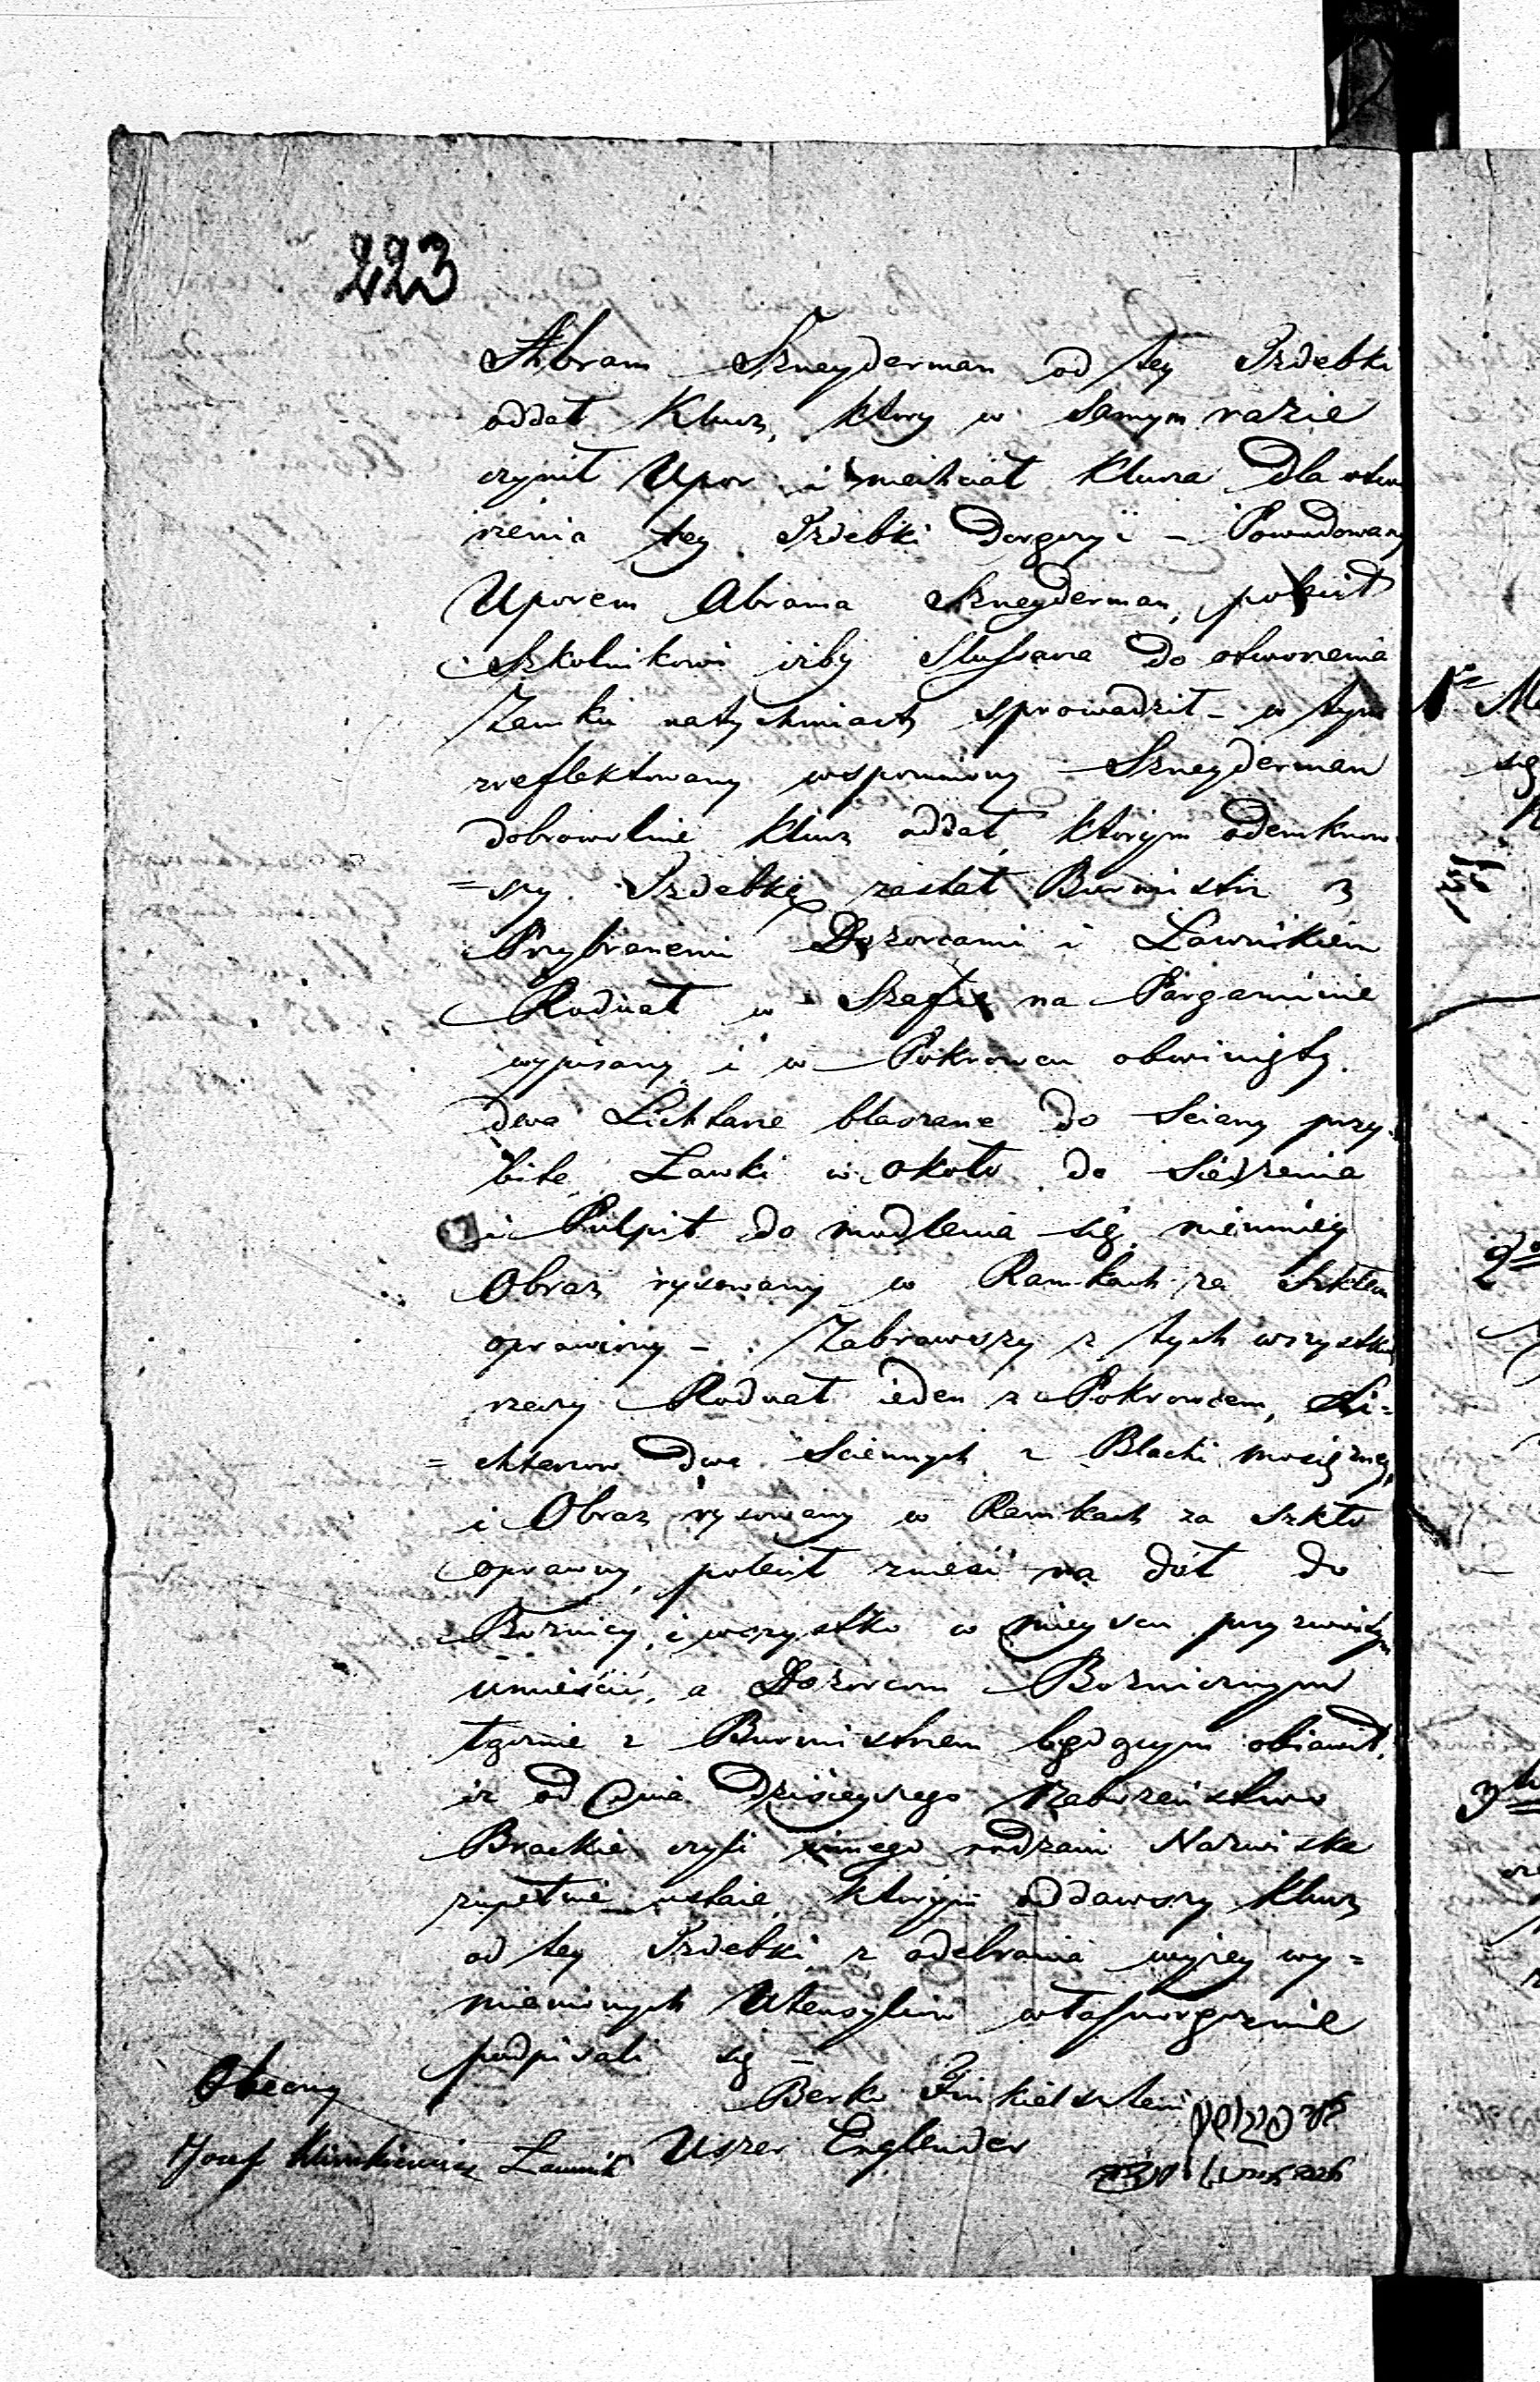 223
Abram Szneyderman od tey Izdebki
oddał Klucz, ktory w samym razie
czynił Upor i niechciał Klucza dla otwo
rzenia tey Izdebki Doręczyć – Powodowany
Uporem Abrama Szneyderman, polecił
Szkolnikowi iżby Slussarza do otworzenia
Zamku natychmiast sprowadził – w tym
zreflektowany wspomniony Szneyderman
dobrowolnie Klucz oddał, ktorym odemknow
=szy Izdebkę zastał Burmistrz z
Przybranemi Dozorcami i Ławnikiem
Roduał w Szafie na Pargaminie
wypisany i w Pokrowcu obwinięty.
dwa Lichtarze blaszane do Sciany przy-
bite, Ławki w około do Siedzenia
i Pulpit do modlenia się, niemniey
Obraz rysowany w Ramkach za Szkłem
oprawiony – Zabrawszy z tych wszystkich
rzeczy Roduał ieden z Pokrowcem, Li=
=chtarzow dwa Sciennych z Blachi mosiężney,
i Obraz rysowany w Ramkach za szkło
oprawny, polecił znieść na dół do
Bożnicy, i wszystko w mieyscu przyzwoitym
umieścić, a Dozorcom Bożnicznym
łącznie z Burmistrzem będącym obiawił,
iż od Dnia Dzisieyszego Nabożeństwo
Brackie czyli innego rodzaiu Nazwiska
zupełnie ustaie, ktorym oddawszy Klucz
od tey Izdebki z odebrania wyżey wy=
mienionych Utensyliow własnoręcznie
podpisali się –
Berko Finkielsztein
Obecny
Uszer Englender
Jozef Klimkiewicz Ławnik